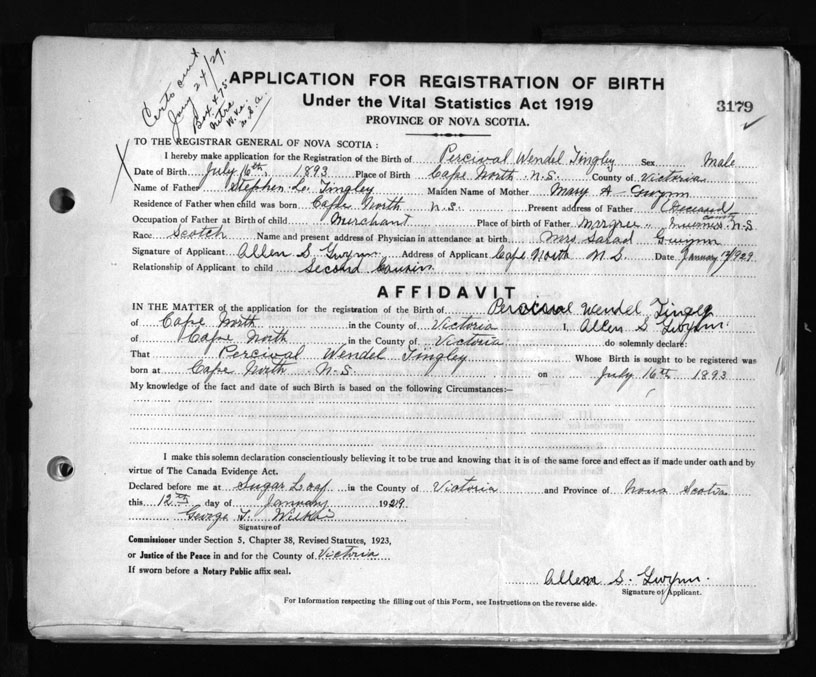 Certs out
Jany 24/29.
Box 475.
W. Va.
U.S.A.
APPLICATION FOR REGISTRATION OF BIRTH
Under the Vital Statistics Act 1919
3179
PROVINCE OF NOVA SCOTIA.
TO THE REGISTRAR GENERAL OF NOVA SCOTIA:
I hereby make application for the Registration of the Birth of Percival Wendel Tingley Sex Male
Date of Birth July 16th, 1893 Place of Birth Cape North N.S. County of Victoria
Name of Father Stephen L. Tingley Maiden Name of Mother Mary A Gwynn
Residence of Father when child was born Cape North N.S. Present address of Father Deceased
Occupation of Father at Birth of child Merchant Place of birth of Father Margree County N.S
Race Scotch Name and present address of Physician in attendance at birth Mrs Sarad Gwynn
Signature of Applicant Allen S. Gwynn Address of Applicant Cape North N S. Date January 12/1929
Relationship of Applicant to child Second Cousin
AFFIDAVIT
IN THE MATTER of the application for the registration of the Birth of Percival Wendel Tingley
of Cape North in the County of Victoria I, Allen S Gwynn
of Cape North in the County of Victoria do solemnly declare:
That Percival Wendel Tingley Whose Birth is sought to be registered was
born at Cape North N.S. on July 16th 1893
My knowledge of the fact and date of such Birth is based on the following Circumstances:—
I make this solemn declaration conscientiously believing it to be true and knowing that it is of the same force and effect as if made under oath and by
virtue of The Canada Evidence Act.
Declared before me at Sugar Loaf in the County of Victoria and Province of Nova Scotia
this 12th day of January 1929
George T.
Signature of
Commissioner under Section 5, Chapter 38, Revised Statutes, 1923,
or Justice of the Peace in and for the County of Victoria
If sworn before a Notary Public affix seal.
Allen S. Gwynn.
Signature of Applicant.
For Information respecting the filling out of this Form, see Instructions on the reverse side.